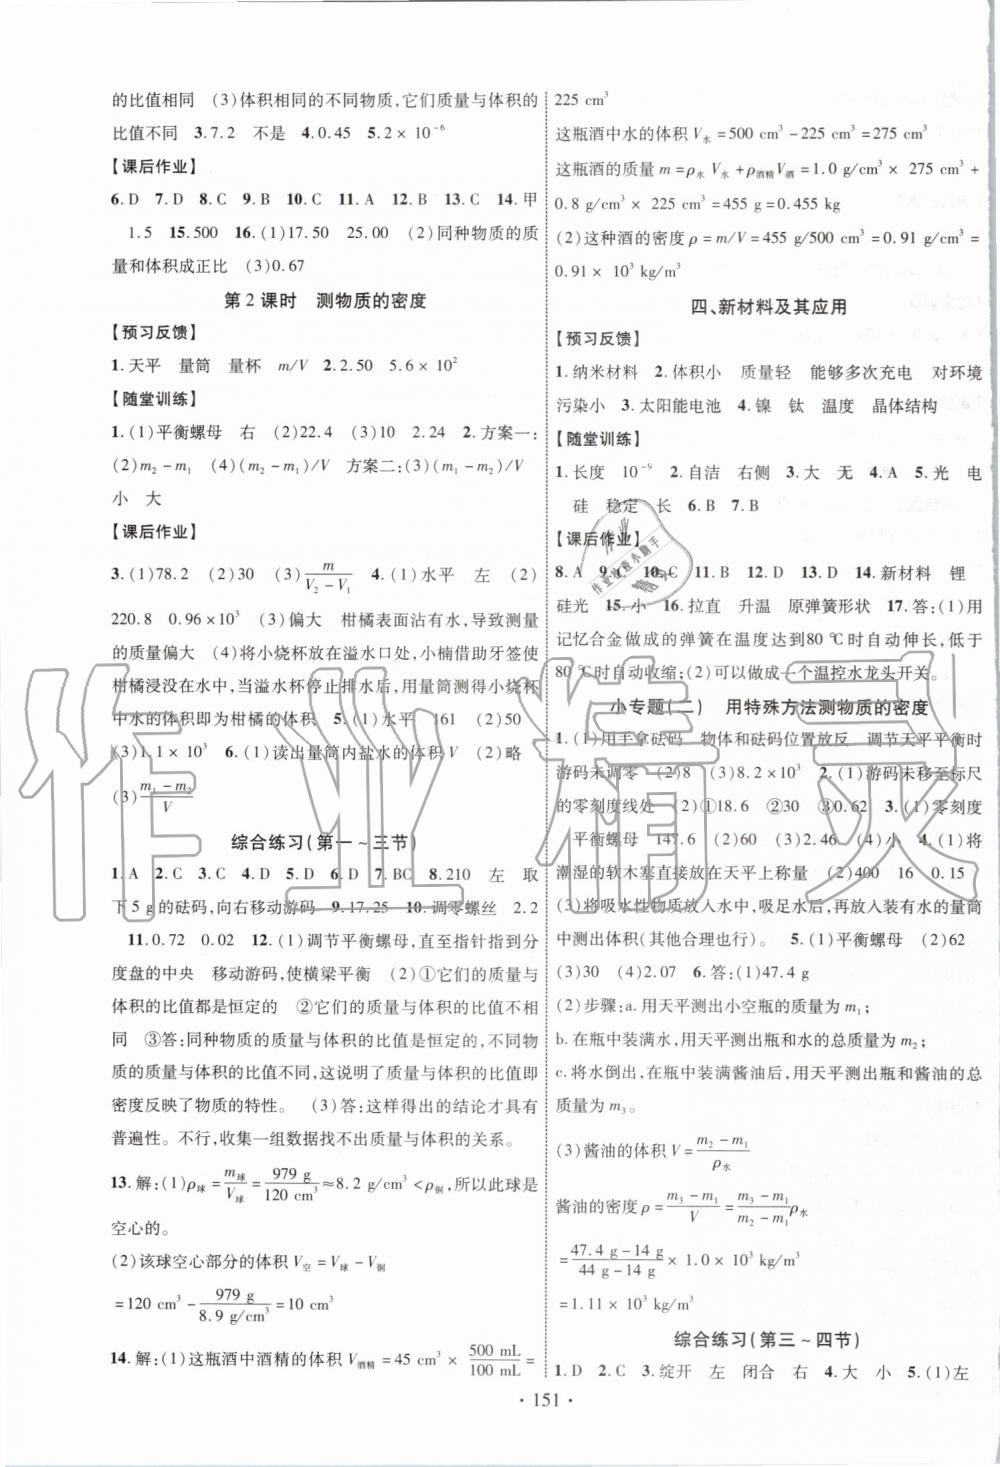 的比值相同　(3)体积相同的不同物质,它们质量与体积的
比值不同　3.7.2　不是　4.0.45　5.2×10⁻⁶
【课后作业】
6.D　7.D　8.C　9.B　10.C　11.A　12.B　13.C　14.甲
1.5　15.500　16.(1)17.50　25.00　(2)同种物质的质
量和体积成正比　(3)0.67
第2课时　测物质的密度
【预习反馈】
1.天平　量筒　量杯　m/V　2.2.50　5.6×10²
【随堂训练】
1.(1)平衡螺母　右　(2)22.4　(3)10　2.24　2.方案一:
(2)m₂-m₁　(4)(m₂-m₁)/V　方案二:(3)(m₁-m₂)/V
小　大
【课后作业】
3.(1)78.2　(2)30　(3)m/(V₂-V₁)　4.(1)水平　左　(2)
220.8　0.96×10³　(3)偏大　柑橘表面沾有水,导致测量
的质量偏大　(4)将小烧杯放在溢水口处,小楠借助牙签使
柑橘浸没在水中,当溢水杯停止排水后,用量筒测得小烧杯
中水的体积即为柑橘的体积　5.(1)水平　161　(2)50
(3)1.1×10³　6.(1)读出量筒内盐水的体积V　(2)略
(3)(m₁-m₂)/V
综合练习(第一~三节)
1.A　2.C　3.C　4.D　5.D　6.D　7.BC　8.210　左　取
下5 g的砝码,向右移动游码　9.17.25　10.调零螺丝　2.2
11.0.72　0.02　12.(1)调节平衡螺母,直至指针指到分
度盘的中央　移动游码,使横梁平衡　(2)①它们的质量与
体积的比值都是恒定的　②它们的质量与体积的比值不相
同　③答:同种物质的质量与体积的比值是恒定的,不同物
质的质量与体积的比值不同,这说明了质量与体积的比值即
密度反映了物质的特性。　(3)答:这样得出的结论才具有
普遍性。不行,收集一组数据找不出质量与体积的关系。
13.解:(1)ρ球=m球/V球=979 g/120 cm³≈8.2 g/cm³<ρ铜,所以此球是
空心的。
(2)该球空心部分的体积V空=V球-V铜
=120 cm³-979 g/8.9 g/cm³=10 cm³
14.解:(1)这瓶酒中酒精的体积V酒精=45 cm³×500 mL/100 mL=
225 cm³
这瓶酒中水的体积V水=500 cm³-225 cm³=275 cm³
这瓶酒的质量m=ρ水V水+ρ酒精V酒=1.0 g/cm³×275 cm³+
0.8 g/cm³×225 cm³=455 g=0.455 kg
(2)这种酒的密度ρ=m/V=455 g/500 cm³=0.91 g/cm³=
0.91×10³ kg/m³
四、新材料及其应用
【预习反馈】
1.纳米材料　2.体积小　质量轻　能够多次充电　对环境
污染小　3.太阳能电池　4.镍　钛　温度　晶体结构
【随堂训练】
1.长度　10⁻⁹　2.自洁　右侧　3.大　无　4.A　5.光　电
硅　稳定　长　6.B　7.B
【课后作业】
8.A　9.C　10.C　11.B　12.D　13.D　14.新材料　锂
硅光　15.小　16.拉直　升温　原弹簧形状　17.答:(1)用
记忆合金做成的弹簧在温度达到80 ℃时自动伸长,低于
80 ℃时自动收缩;(2)可以做成一个温控水龙头开关。
小专题(二)　用特殊方法测物质的密度
1.(1)用手拿砝码　物体和砝码位置放反　调节天平平衡时
游码未调零　(2)8　(3)8.2×10³　2.(1)游码未移至标尺
的零刻度线处　(2)①18.6　②30　③0.62　3.(1)零刻度
平衡螺母　147.6　(2)60　(3)2.46　(4)小　4.(1)将
潮湿的软木塞直接放在天平上称量　(2)400　16　0.15
(3)将吸水性物质放入水中,吸足水后,再放入装有水的量筒
中测出体积(其他合理也行)。　5.(1)平衡螺母　(2)62
(3)30　(4)2.07　6.答:(1)47.4 g
(2)步骤:a.用天平测出小空瓶的质量为m₁;
b.在瓶中装满水,用天平测出瓶和水的总质量为m₂;
c.将水倒出,在瓶中装满酱油,用天平测出瓶和酱油的总
质量为m₃。
(3)酱油的体积V=(m₂-m₁)/ρ水
酱油的密度ρ=(m₃-m₁)/V=(m₃-m₁)/(m₂-m₁)ρ水
=(47.4 g-14 g)/(44 g-14 g)×1.0×10³ kg/m³
=1.11×10³ kg/m³
综合练习(第三~四节)
1.D　2.C　3.绽开　左　闭合　右　4.大　小　5.(1)左
·151·
作业精灵